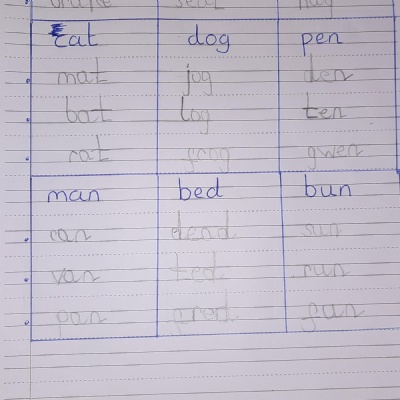 cat dog pen
mat jog den
bat log ten
rat frog gwen
man bed bun
can dead sun
van ted run
pan fred fun